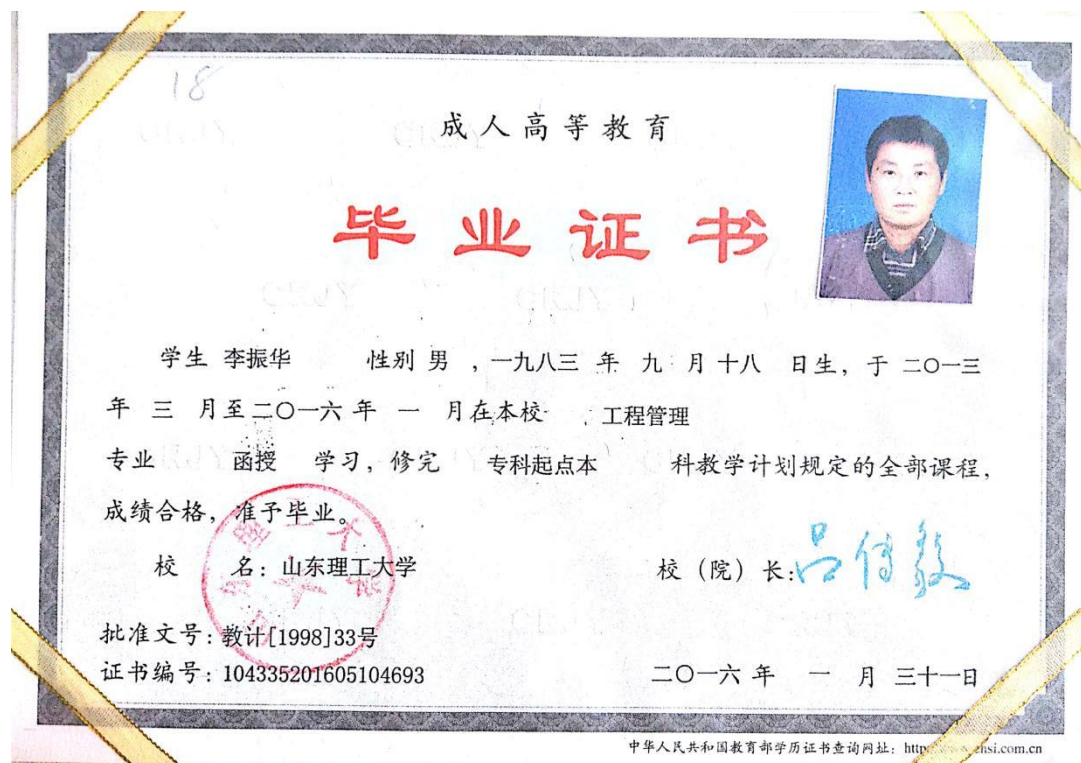 18
成人高等教育
毕业证书
学生 李振华 性别 男 ，一九八三 年 九 月 十八 日生，于 二〇一三
年 三 月至二〇一六 年 一 月在本校 工程管理
专业 函授 学习，修完 专科起点本 科教学计划规定的全部课程，
成绩合格，准予毕业。
校 名：山东理工大学
校（院）长：吕传毅
山东理工大学
批准文号：教计[1998]33号
证书编号：104335201605104693
二〇一六 年 一 月 三十一日
中华人民共和国教育部学历证书查询网址：http chsi.com.cn